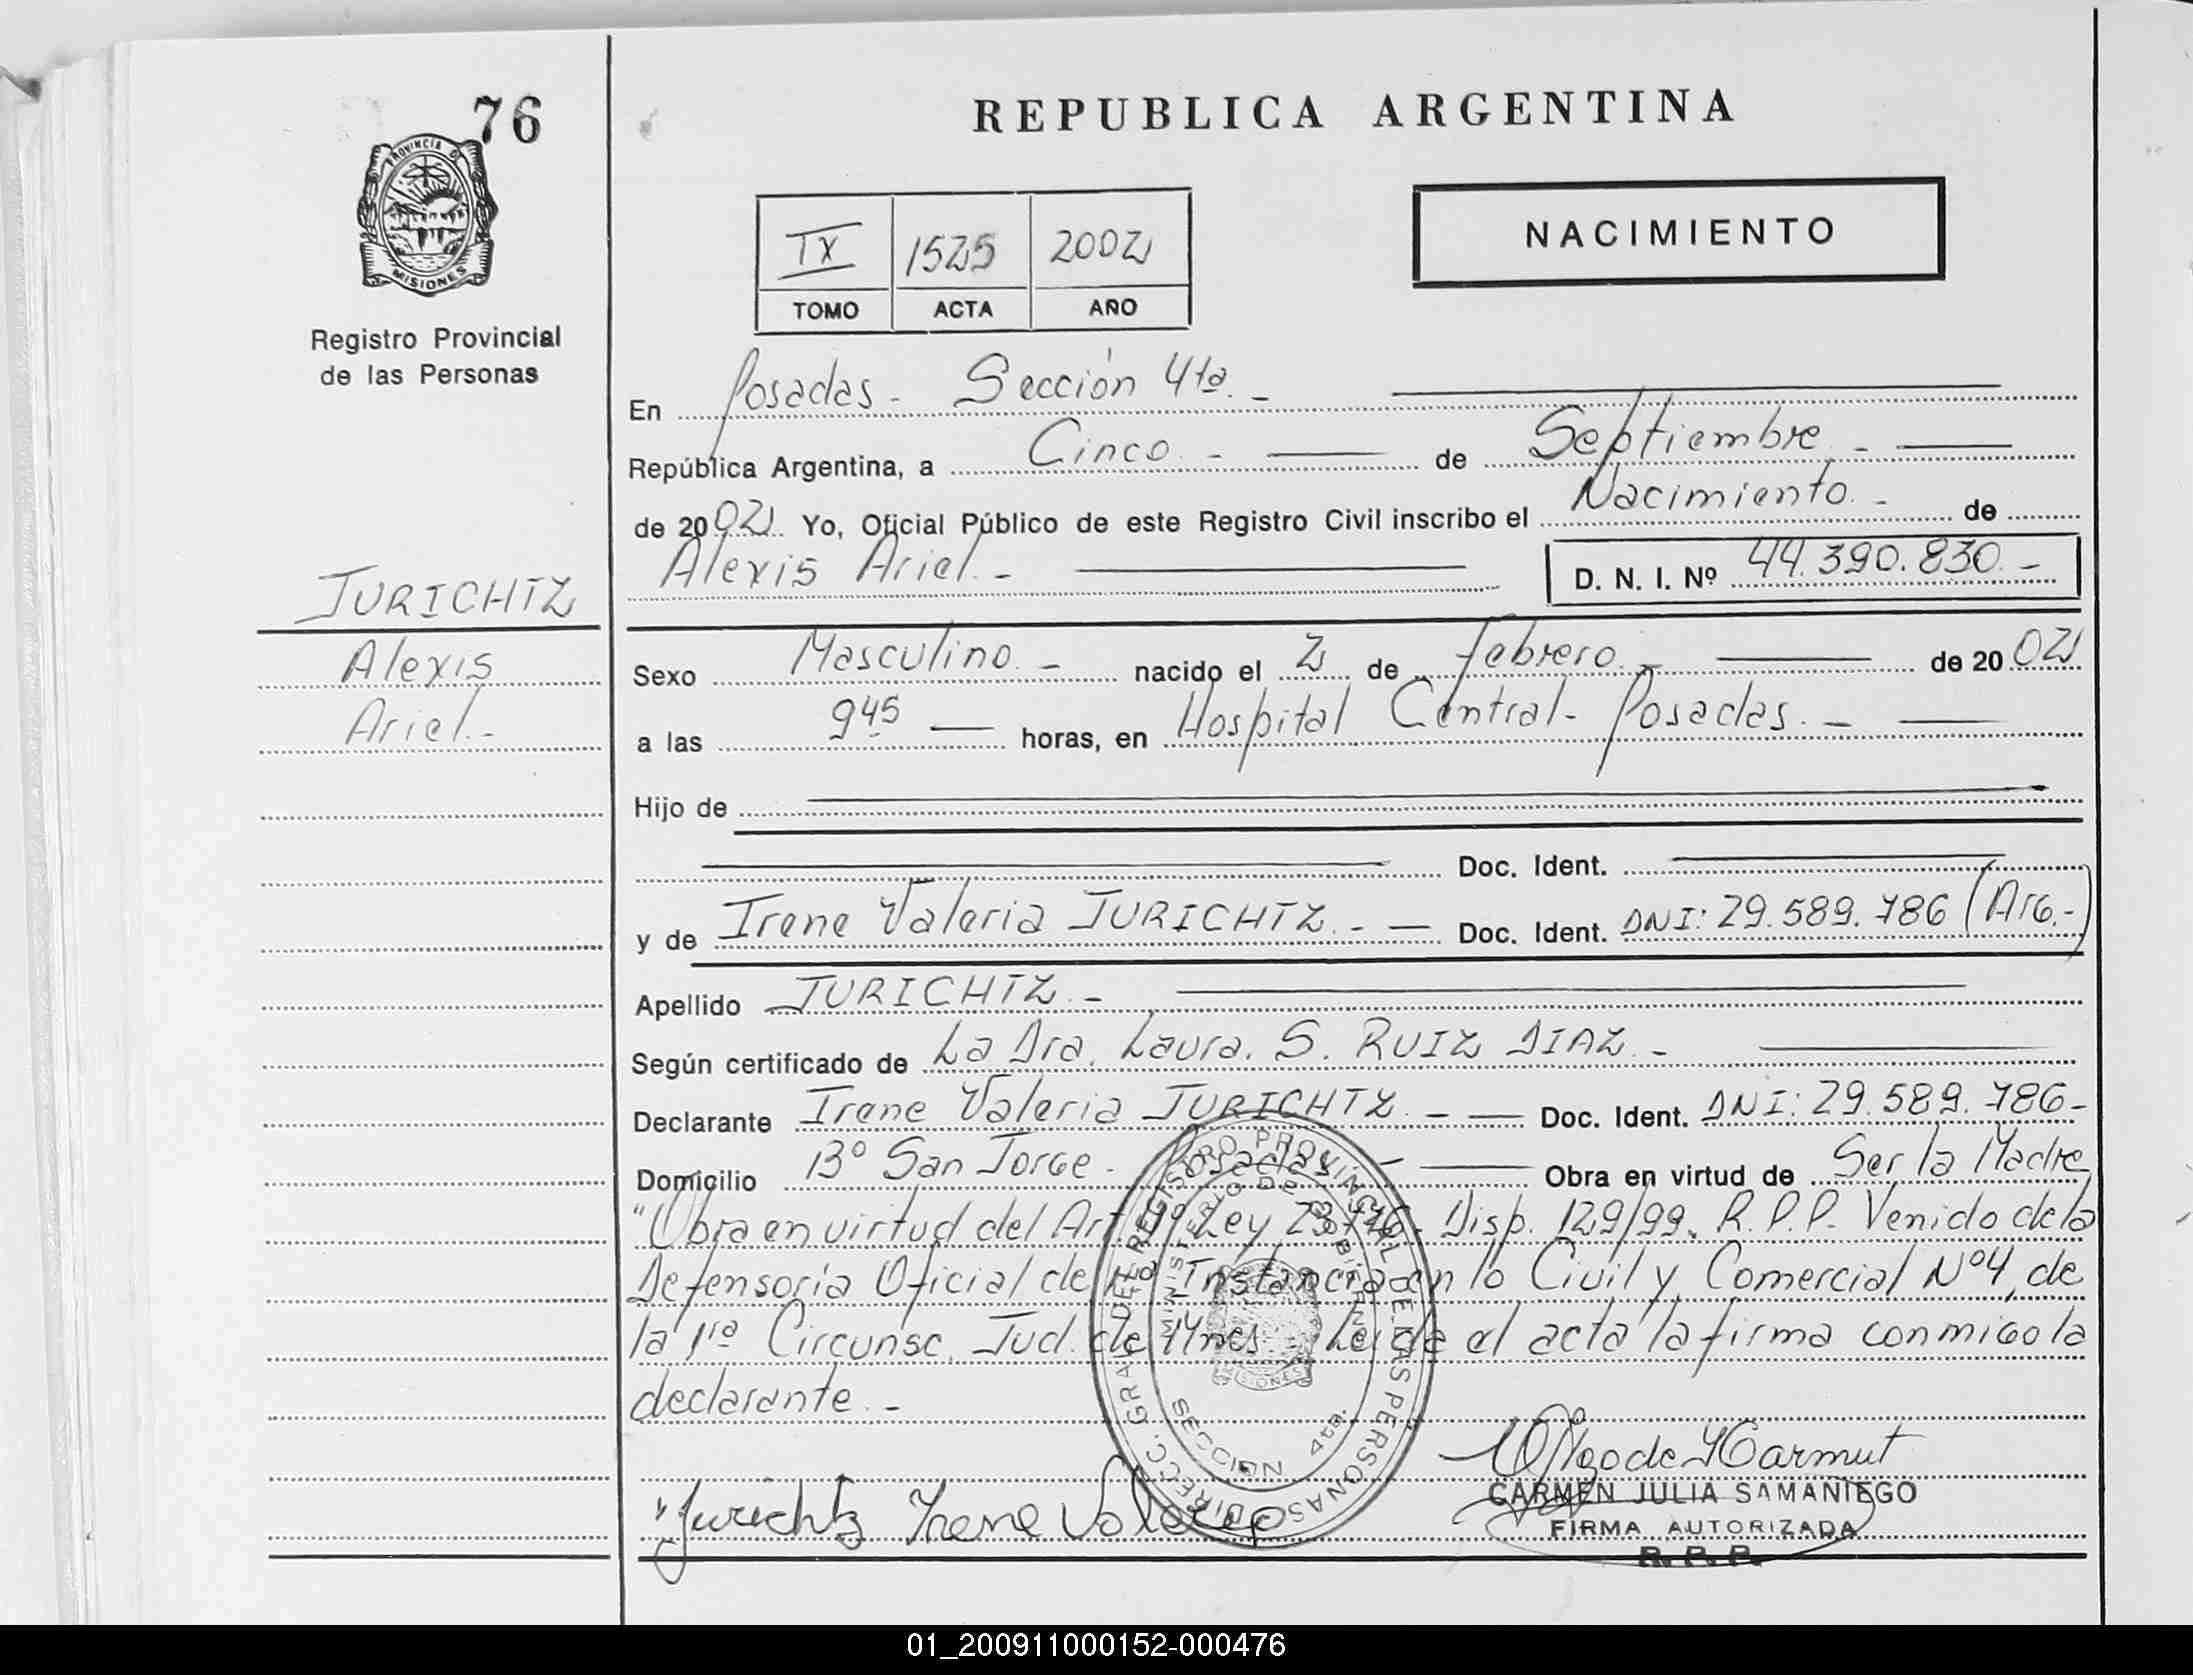 76
PROVINCIA D
MISIONES
Registro Provincial
de las Personas
JURICHTZ
Alexis
Ariel.-
REPUBLICA ARGENTINA
NACIMIENTO
IX 1525 2002
TOMO ACTA AÑO
En Posadas - Sección 4ta. -
República Argentina, a Cinco. - de Septiembre. -
de 2002. Yo, Oficial Público de este Registro Civil inscribo el Nacimiento. - de
Alexis Ariel. - D. N. I. Nº 44.390.830. -
Sexo Masculino. - nacido el 2 de febrero. - de 2002
a las 9 45 horas, en Hospital Central - Posadas. -
Hijo de
Doc. Ident.
y de Irene Valeria JURICHTZ. - Doc. Ident. DNI: 29.589.786 (Arg.-)
Apellido JURICHTZ. -
Según certificado de La Dra. Laura. S. RUIZ DIAZ. -
Declarante Irene Valeria JURICHTZ. - Doc. Ident. DNI: 29.589.786-
Domicilio Bº San Jorge - Posadas - Obra en virtud de Ser la Madre
"Obra en virtud del Art. Ley Disp. 129/99. R.P.P. Venido de la
Defensoría Oficial de Instancia en lo Civil y Comercial Nº4, de
la 1ra Circunsc. Jud. de Mnes. Leída el acta la firma conmigo la
declarante. -
DIRECC. GRAL. DEL REGISTRO PROVINCIAL DE LAS PERSONAS
MINISTERIO DE GOBIERNO
MISIONES
SECCION 4ta.
Jurichtz Irene Valeria
CARMEN JULIA SAMANIEGO
FIRMA AUTORIZADA
R. P. P.
01_200911000152-000476